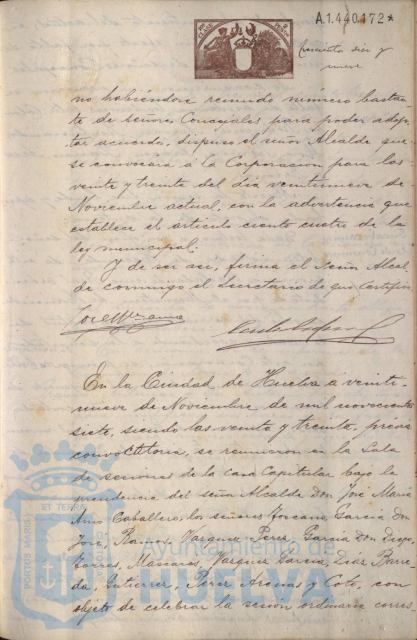 A.1.440.172*
Doscientos diez y
nueve
no habiéndose reunido número bastan
te de señores Concejales para poder adop
tar acuerdo, dispuso el señor Alcalde que
se convocára á la Corporación para las
veinte y treinta del día veintinueve de
Noviembre actual, con la advertencia que
establece el artículo ciento cuatro de la
ley municipal.
Y de ser así, firma el Señor Alcal
de conmigo el Secretario de que certifico
En la Ciudad de Huelva á veinti
nueve de Noviembre de mil novecientos
siete, siendo las veinte y treinta, previa
convocatoria, se reunieron en la Sala
de sesiones de la casa Capitular bajo la
presidencia del señor Alcalde Don José María
Caballero, los señores García Don
José, Barrios, Vazquez Perez, García Don Diego,
Torres, Mascaros, Vazquez García, Diaz Barre
da, Gutierrez, Perez Arenas y Coto, con
objeto de celebrar la sesion ordinaria corres
Ayuntamiento de
HUELVA
PORTUS MARIS
ET TERRAE